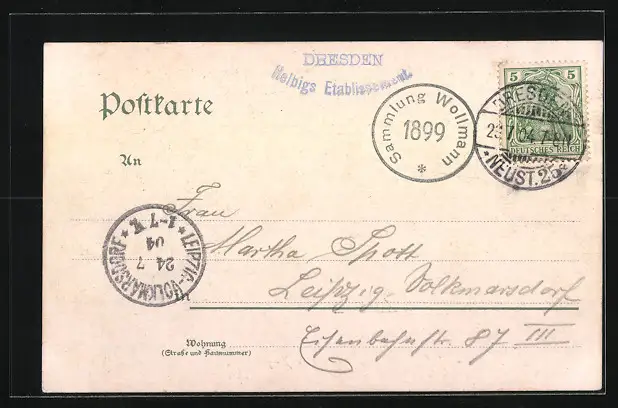 DRESDEN
Helbigs Etablissement.
Postkarte
Sammlung Wollmann
1899
*
5 5
DEUTSCHES REICH
DRESDEN
NEUST. 25
An
Frau
Martha Spott
Leipzig-Volkmarsdorf
Eisenbahnstr. 87 III
*LEIPZIG-VOLKMARSDORF*
24 7
04
1-7
In
Wohnung
(Straße und Hausnummer)